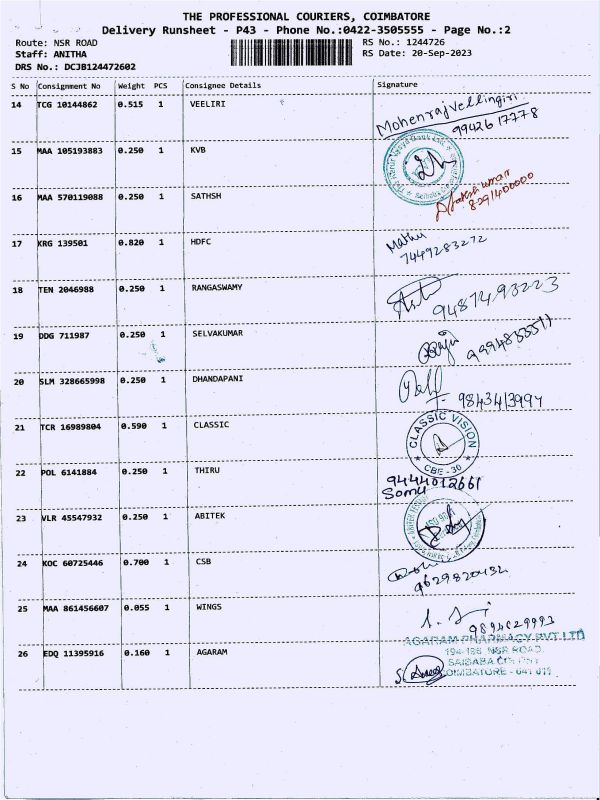 THE PROFESSIONAL COURIERS, COIMBATORE
Delivery Runsheet - P43 - Phone No.:0422-3505555 - Page No.:2
Route: NSR ROAD RS No.: 1244726
Staff: ANITHA RS Date: 20-Sep-2023
DRS No.: DCJB124472602
S No Consignment No Weight PCS Consignee Details Signature
14 TCG 10144862 0.515 1 VEELIRI
Mohenrajvellingiri
9942617778
15 MAA 105193883 0.250 1 KVB
16 MAA 570119088 0.250 1 SATHSH
8291400000
17 KRG 139501 0.820 1 HDFC
Mathu
7449283272
18 TEN 2046988 0.250 1 RANGASWAMY
9487493223
19 DDG 711987 0.250 1 SELVAKUMAR
9994833511
20 SLM 328665998 0.250 1 DHANDAPANI
9843413994
21 TCR 16989804 0.590 1 CLASSIC
CLASSIC VISION
CBE - 30
22 POL 6141884 0.250 1 THIRU
9444012661
Somu
23 VLR 45547932 0.250 1 ABITEK
24 KOC 60725446 0.700 1 CSB
9629820432
25 MAA 861456607 0.055 1 WINGS
9894629993
26 EDQ 11395916 0.160 1 AGARAM
AGARAM PHARMACY PVT LTD
NSR ROAD
SAIBABA COLONY
COIMBATORE - 641 011